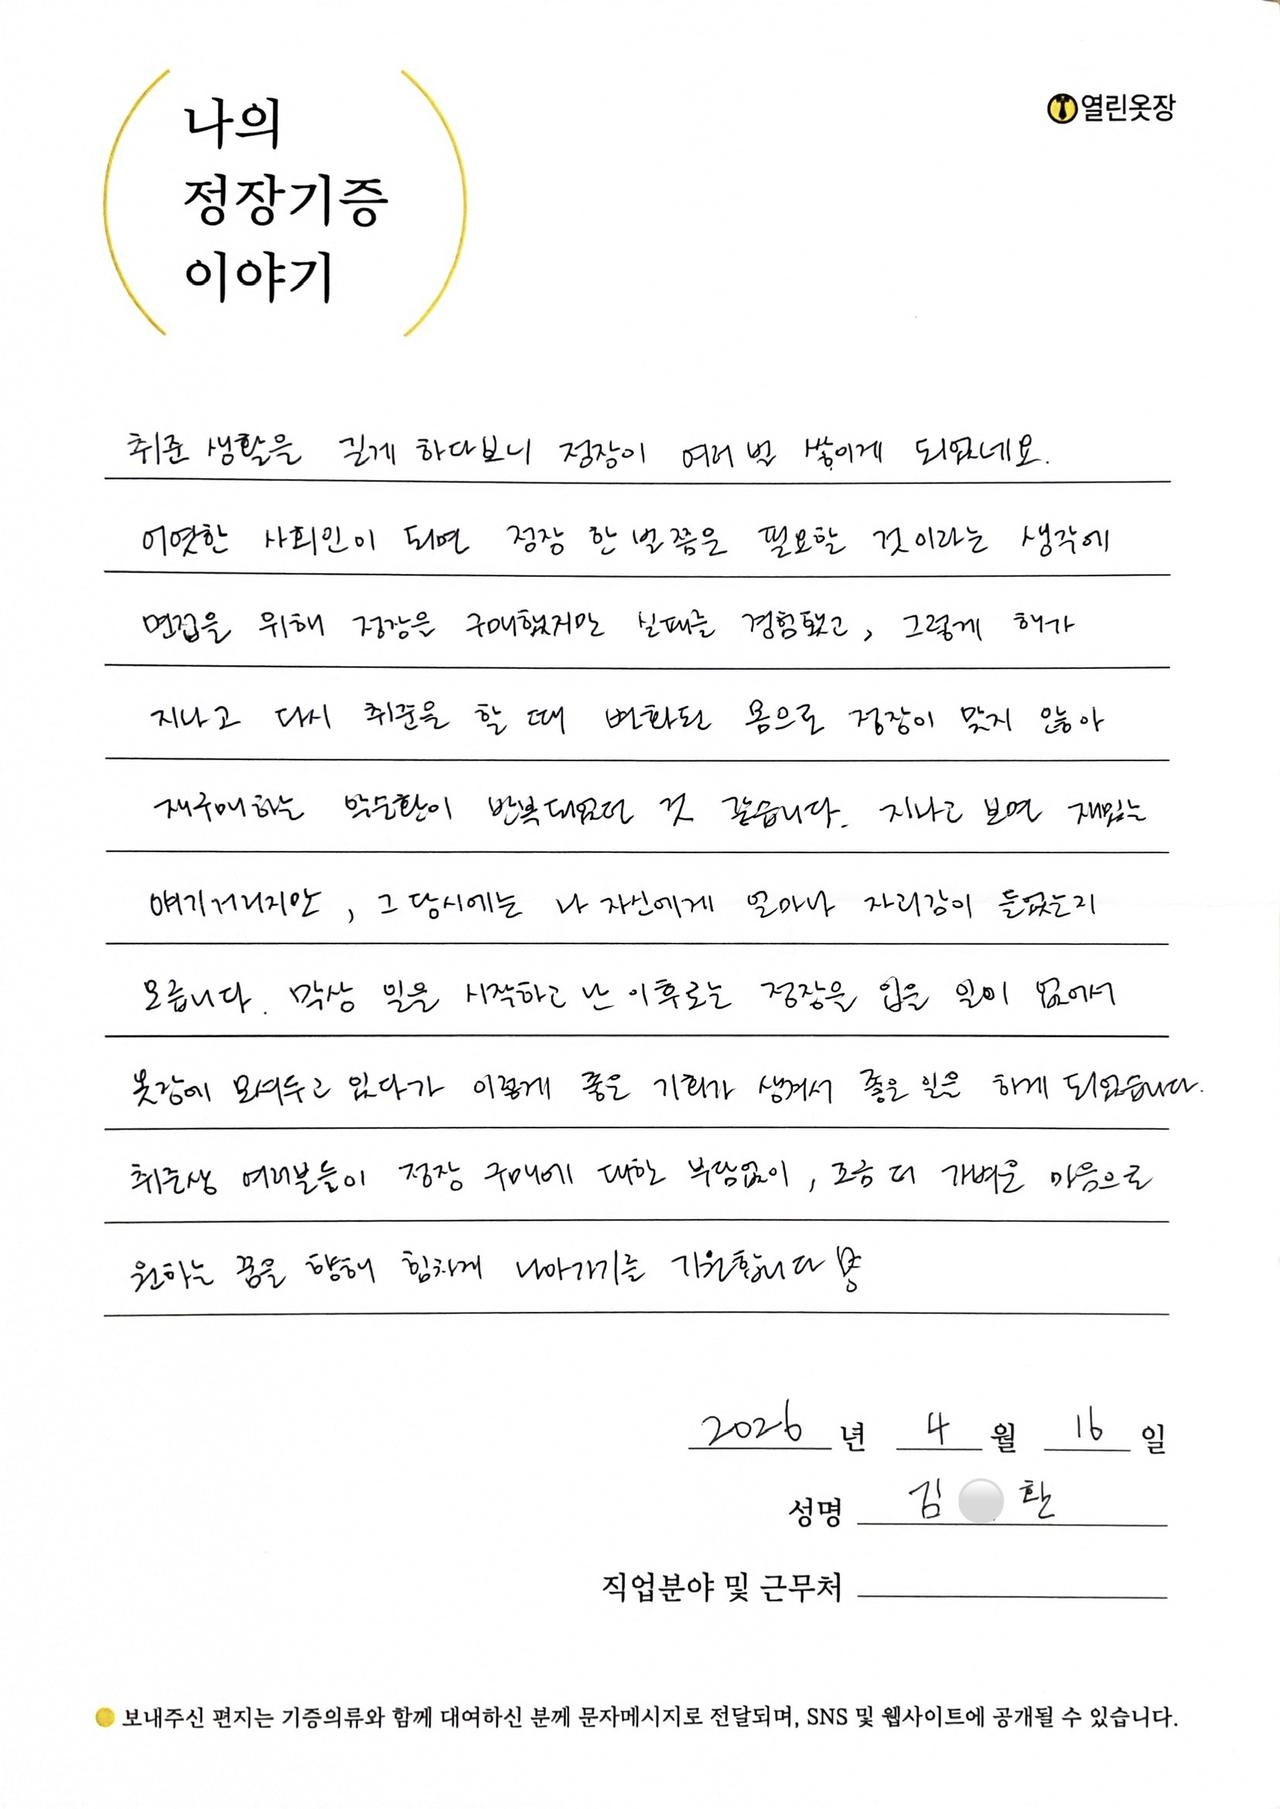 나의
정장기증
이야기
열린옷장
취준 생활을 길게 하다보니 정장이 여러 벌 쌓이게 되었네요.
어엿한 사회인이 되면 정장 한 벌 쯤은 필요할 것이라는 생각에
면접을 위해 정장을 구매했지만 실패를 경험했고, 그렇게 해가
지나고 다시 취준을 할 때 변화된 몸으로 정장이 맞지 않아
재구매하는 악순환이 반복되었던 것 같습니다. 지나고 보면 재밌는
얘기거리지만, 그 당시에는 나 자신에게 얼마나 자괴감이 들었는지
모릅니다. 막상 일을 시작하고 난 이후로는 정장을 입을 일이 없어서
옷장에 모셔두고 있다가 이렇게 좋은 기회가 생겨서 좋은 일을 하게 되었습니다.
취준생 여러분들이 정장 구매에 대한 부담없이, 조금 더 가벼운 마음으로
원하는 꿈을 향해 힘차게 나아가기를 기원합니다
2026 년 4 월 16 일
성명 김 환
직업분야 및 근무처
보내주신 편지는 기증의류와 함께 대여하신 분께 문자메시지로 전달되며, SNS 및 웹사이트에 공개될 수 있습니다.